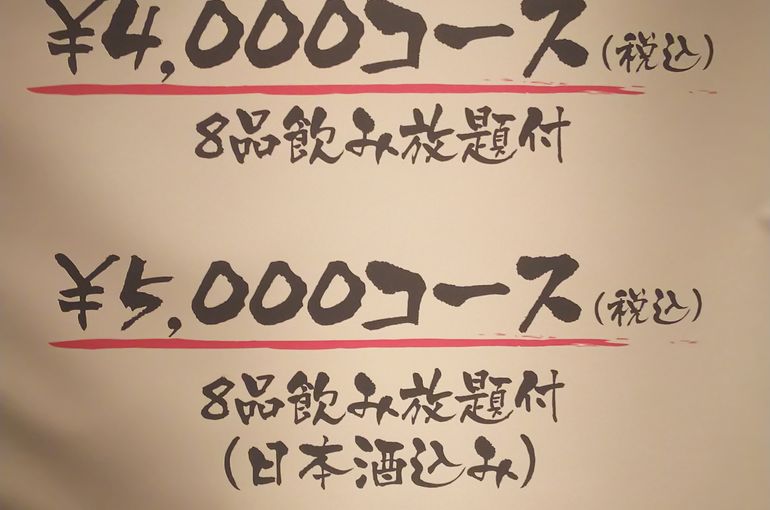 ¥4,000コース(税込)
8品飲み放題付
¥5,000コース(税込)
8品飲み放題付
(日本酒込み)